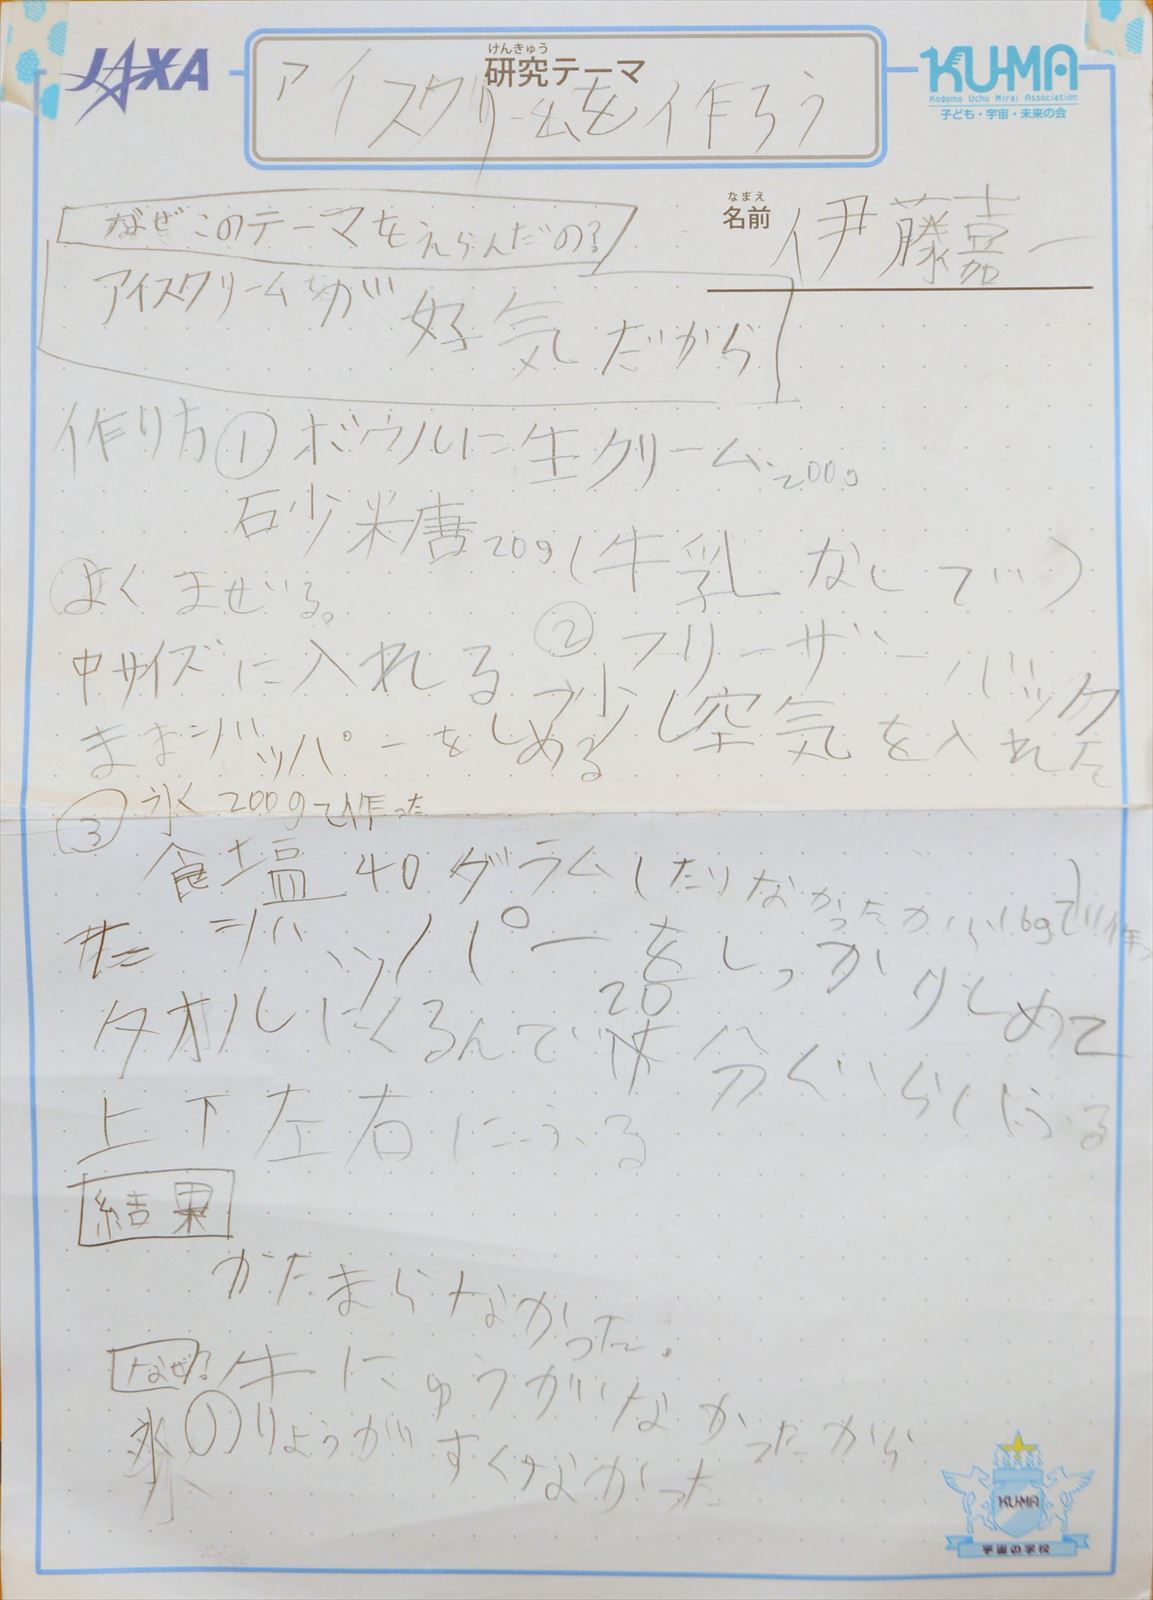 JAXA
けんきゅう
研究テーマ
アイスクリームを作ろう
KU-MA
Kodomo Uchu Mirai Association
子ども・宇宙・未来の会
なまえ
名前 伊藤嘉一
なぜこのテーマをえらんだの?
アイスクリームが好気だから
作り方①ボウルに生クリーム200g
砂糖20g(牛乳なしで)
よくまぜる。
②フリーザーバック
中サイズに入れる
少し空気を入れた
ままジッパーをしめる
③氷200gで作った
食塩40グラム(たりなかったから16gで作っ
た)ジッパーをしっかりしめて
タオルにくるんで20分ぐらい
上下左右にふる
結果
かたまらなかった。
なぜ?牛にゅうがなかったから
氷のりょうがすくなかった
KU-MA
宇宙の学校